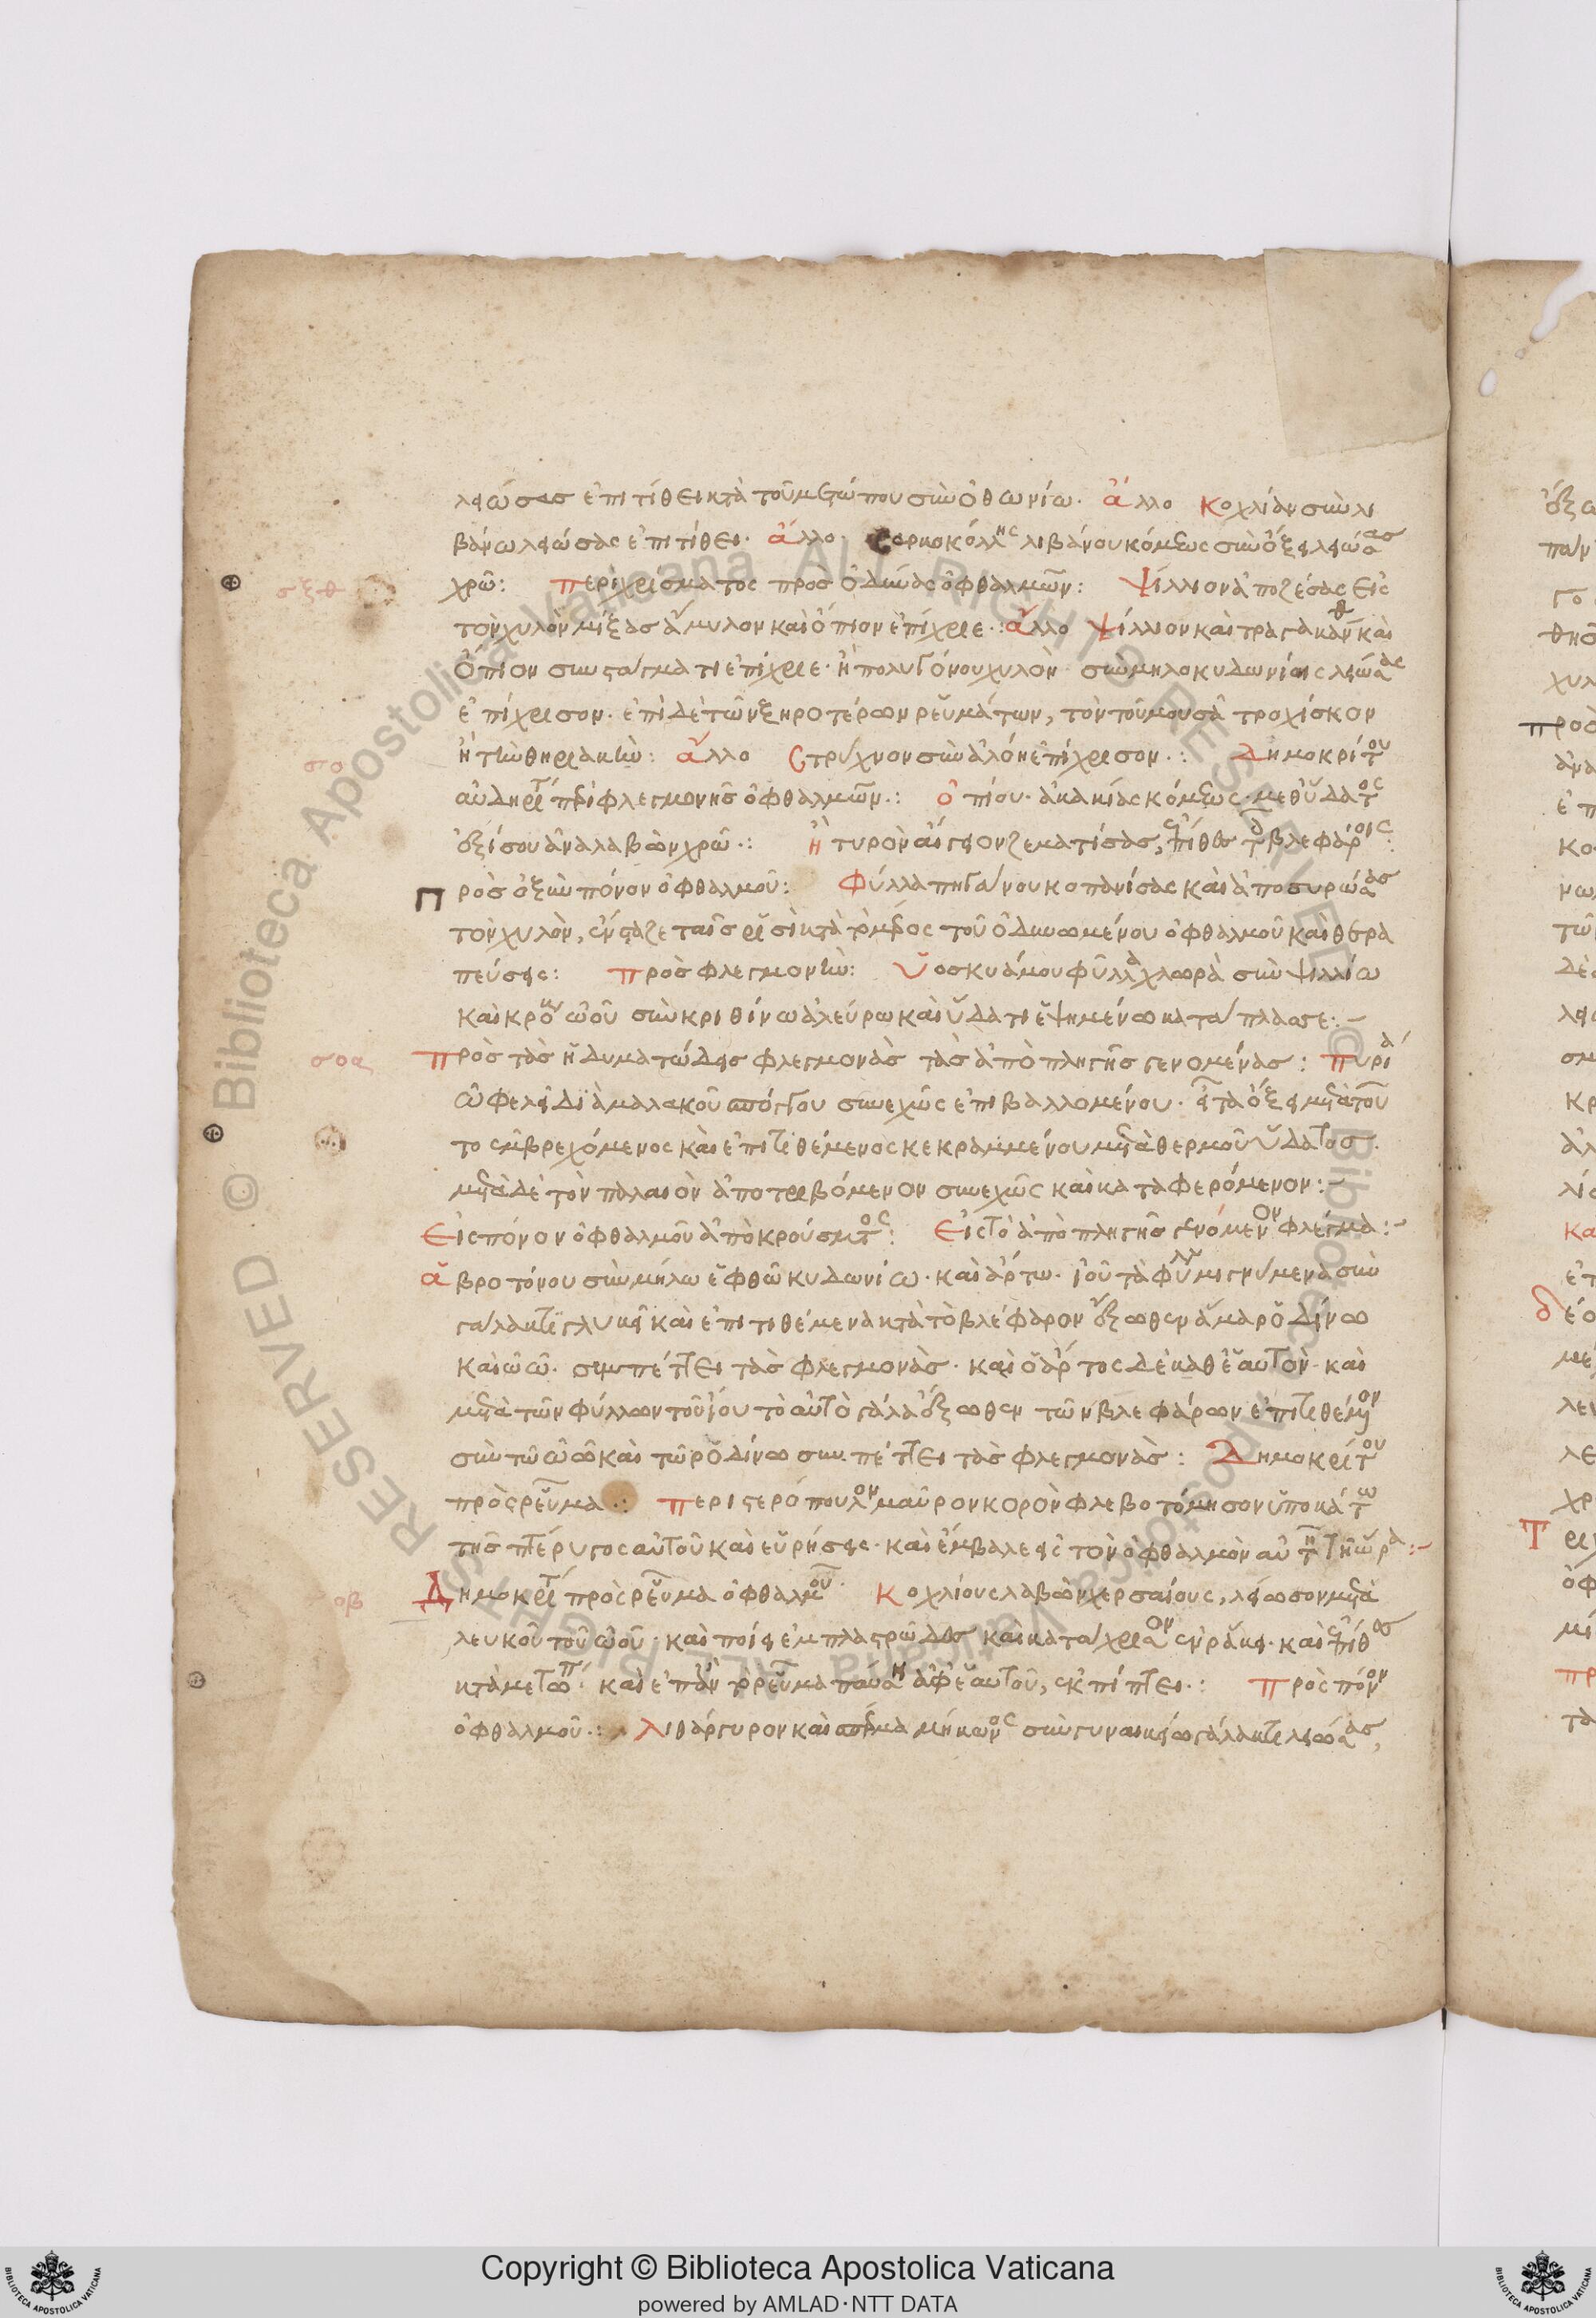 λειώσας ἐπιτίθει κατὰ τοῦ μετώπου σὺν ὀθωνίω. ἄλλο κοχλίαν σὺν λι
βάνω λειώσας ἐπιτίθει. ἄλλο. σαρκοκόλλης λιβάνου κόμεως σὺν ὄξει λειώσας
χρῶ: περιχρίσματος πρὸς ὀδύνας ὀφθαλμῶν: ψίλλιον ἀποζέσας εἰς
σξθ
τὸν χυλὸν μίξας ἄμυλον καὶ ὄπιον ἐπίχριε.: ἄλλο ψίλλιον καὶ τραγάκανθαν καὶ
ὄπιον σὺν στάγματι ἐπίχριε. ἢ πολυγόνου χυλὸν σὺν μηλοκυδωνίοις λειώσας
ἐπίχρισον. ἐπὶ δὲ τῶν ξηροτέρων ῥευμάτων, τὸν τοῦ μουσᾶ τροχίσκον
ἢ τὴν θηριακὴν: ἄλλο στρύχνον σὺν ἀλόη ἐπίχρισον.: Δημοκρίτου
σο
αὐδηρίτου περὶ φλεγμονῆς ὀφθαλμῶν.: ὀπίου. ἀκακίας κόμεως. μεθ ὕδατος
ἐξίσου ἀναλαβὼν χρῶ.: ἢ τυρὸν αἴγειον ζεματίσας, ἐπίθες τοῖς βλεφάροις:
Πρὸς ὀξὺν πόνον ὀφθαλμοῦ: Φύλλα πηγάνου κοπανίσας καὶ ἀποσυρώσας
τὸν χυλὸν, ἔνσταζε ταῖς ῥισὶ κατὰ τὸ μέρος τοῦ ὀδυνωμένου ὀφθαλμοῦ καὶ θερα
πεύσεις: πρὸς φλεγμονὴν: ὑοσκυάμου φύλλα χλωρὰ σὺν ψιλλίω
καὶ κρόκου ὠοῦ σὺν κριθίνω ἀλεύρω καὶ ὕδατι ἑψημένω κατάπλασσε:
πρὸς τὰς ἡδυματώδεις φλεγμονὰς τὰς ἀπὸ πληγῆς γενομένας: πυρία
σοα
ὠφελεῖ διὰ μαλακοῦ σπόγγου συνεχῶς ἐπιβαλλομένου. εἶτα ὄξει μετὰ τοῦ
το ἐμβρεχόμενος καὶ ἐπιτιθέμενος κεκραμμένου μετὰ θερμοῦ ὕδατος.
μετὰ δὲ τὸν παλαιὸν ἀποτριβόμενον συνεχῶς καὶ καταφερόμενον:
Εἰς πόνον ὀφθαλμοῦ ἀπὸ κρούσματος: Εἰς τὸ ἀπὸ πληγῆς γενόμενον φλέγμα:
ἁβροτόνου σὺν μήλω ἐφθῶ κυδωνίω. καὶ ἄρτω. ἴου τὰ φύλλα μιγνύμενα σὺν
γάλακτι γλυκεῖ καὶ ἐπιτιθέμενα κατὰ τὸ βλέφαρον ἔξωθεν ἅμα ῥοδίνω
καὶ ὠῶ. συμπέττει τὰς φλεγμονάς. καὶ ὁ ἄρτος δὲ καθ ἑαυτὸν. καὶ
μετὰ τῶν φύλλων τοῦ ἴου τὸ αὐτὸ γάλα ἔξωθεν τῶν βλεφάρων ἐπιτιθέμενον
σὺν τῶ ὠῶ καὶ τῶ ῥοδίνω συμπέττει τὰς φλεγμονὰς: Δημοκρίτου
πρὸς ῥεῦμα.: περιστερόπουλον μαῦρον κορὸν φλεβοτόμησον ὑποκάτω
τῆς πτέρυγος αὐτοῦ καὶ εὑρήσεις. καὶ ἔμβαλε εἰς τὸν ὀφθαλμὸν αὐτῆ τῆ ὥρα:
Δημοκρίτου πρὸς ῥεῦμα ὀφθαλμοῦ. κοχλίους λαβὼν χερσαίους, λείωσον μετὰ
οβ
λευκοῦ τοῦ ὠοῦ. καὶ ποίει ἐμπλαστρῶδες καὶ κατάχρισον ἐν ῥάκει. καὶ ἐπίθες
κατὰ μετώπου. καὶ ἐπὰν τὸ ῥεῦμα παύση ἀφ ἑαυτοῦ, ἐκπίπτει.: πρὸς πόνον
ὀφθαλμοῦ.: λιθάργυρον καὶ σπέρμα μήκωνος σὺν γυναικείω γάλακτι λειώσας,